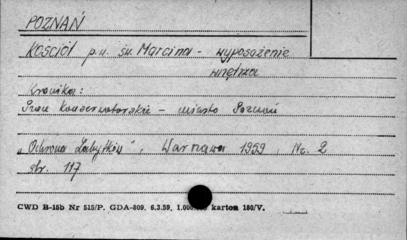 POZNAŃ
KOŚCIÓŁ p.w. św. Marcina - wyposażenie
wnętrza
Kronika:
Prace konserwatorskie - miasto Poznań
"Ochrona Zabytków", Warszawa 1959, Nr. 2
str. 117
CWD B-15b Nr 515/P. GDA-809. 6.3.59. 1.000.000 karton 180/V.